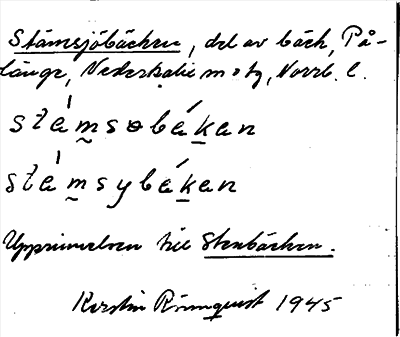 Stämsjöbäcken, del av bäck, På-
länge, Nederkalix m o tg, Norrb. l.
stämsøbäkan
stämsybäkan
till Stenbäcken.
Kerstin Rönnquist 1945